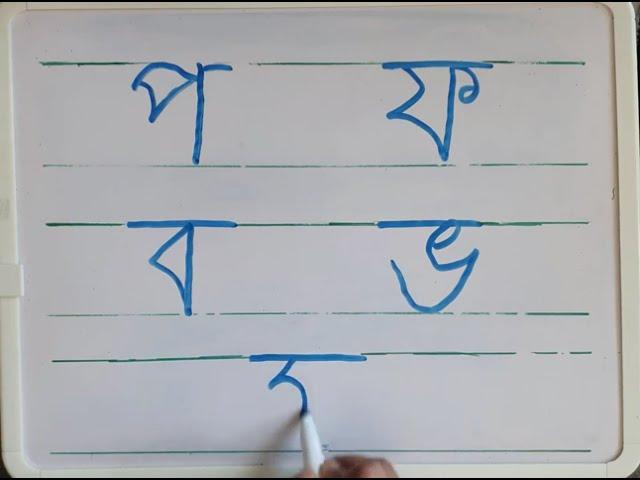 প ফ
ব ভ